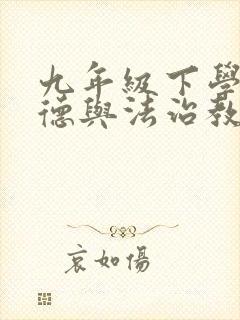 九年級下學
德與法治教
哀如傷